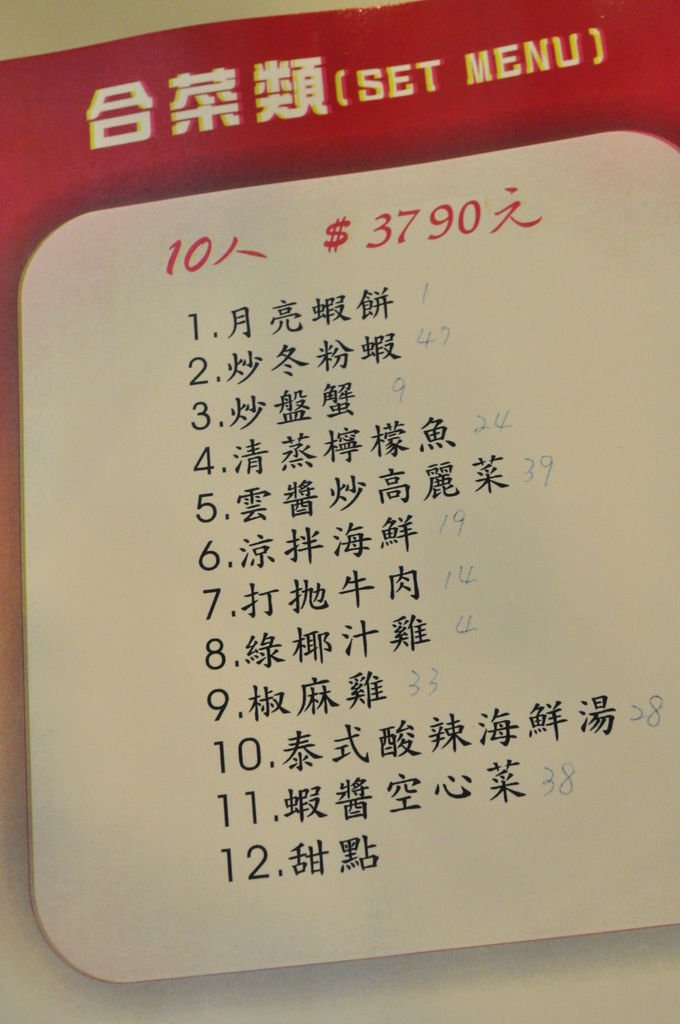 合菜類(SET MENU)
10人 $3790元
1.月亮蝦餅 1
2.炒冬粉蝦 47
3.炒盤蟹 9
4.清蒸檸檬魚 24
5.雲醬炒高麗菜 39
6.涼拌海鮮 19
7.打拋牛肉 14
8.綠椰汁雞 4
9.椒麻雞 33
10.泰式酸辣海鮮湯 28
11.蝦醬空心菜 38
12.甜點